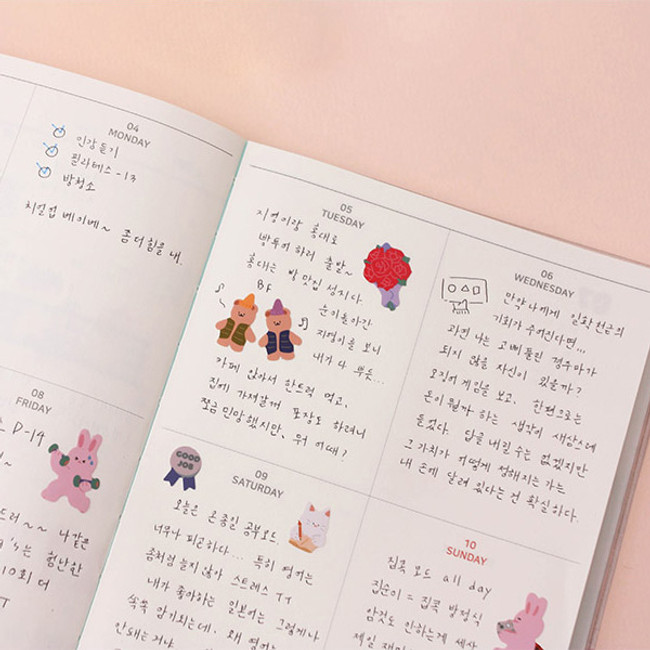 04
MONDAY
인강듣기
필라테스 -13
방청소
치얼업 베이베~ 좀 더 힘을 내.
05
TUESDAY
지영이랑 홍대로
빵투어 하러 출발~
홍대는 빵 맛집 성지다.
BF
눈이 돌아간
지영이를 보니
내가 다 뿌듯...
카페 앉아서 한트럭 먹고,
집에 가져갈꺼 포장도 하려니
쪼금 민망했지만, 뭐 어때?
06
WEDNESDAY
만약 나에게 일확천금의
기회가 주어진다면...
과연 나는 고삐 풀린 경주마가
되지 않을 자신이 있을까?
오징어 게임을 보고, 한편으로는
돈이 뭘까 하는 생각이 새삼스레
들었다. 답을 내릴 수는 없겠지만
그 가치가 어떻게 정해지는가는
내 손에 달려 있다는 건 확실하다.
08
FRIDAY
D-19
~
~~ 나같은
's는 험난한
10회 더
TT
GOOD
JOB
09
SATURDAY
오늘은 온종일 공부모드.
너무나 피곤하다... 특히 영어는
좀처럼 늘지 않아 스트레스 TT
내가 좋아하는 일본어는 그렇게나
쏙쏙 암기되는데, 왜 영어는
안돼는거냐
10
SUNDAY
집콕 모드 all day
집순이 = 집콕 방정식
암것도 안하는게 세상
제일